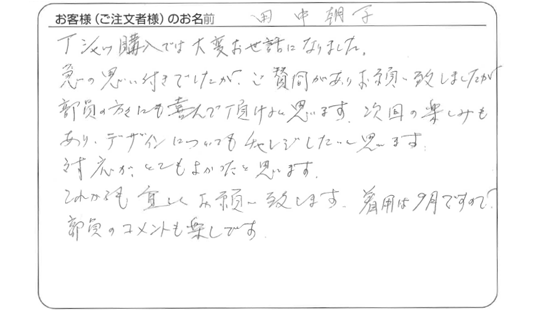 お客様(ご注文者様)のお名前 田中朝子
Tシャツ購入では大変お世話になりました。
急の思い付きでしたが、ご賛同がありお願い致しましたが
部員の方々にも喜んで頂けると思います。次回の楽しみも
あり、デザインについてもチャレンジしたいと思います。
対応が、とてもよかったと思います。
これからも宜しくお願い致します。着用は9月ですので、
部員のコメントも楽しみです。